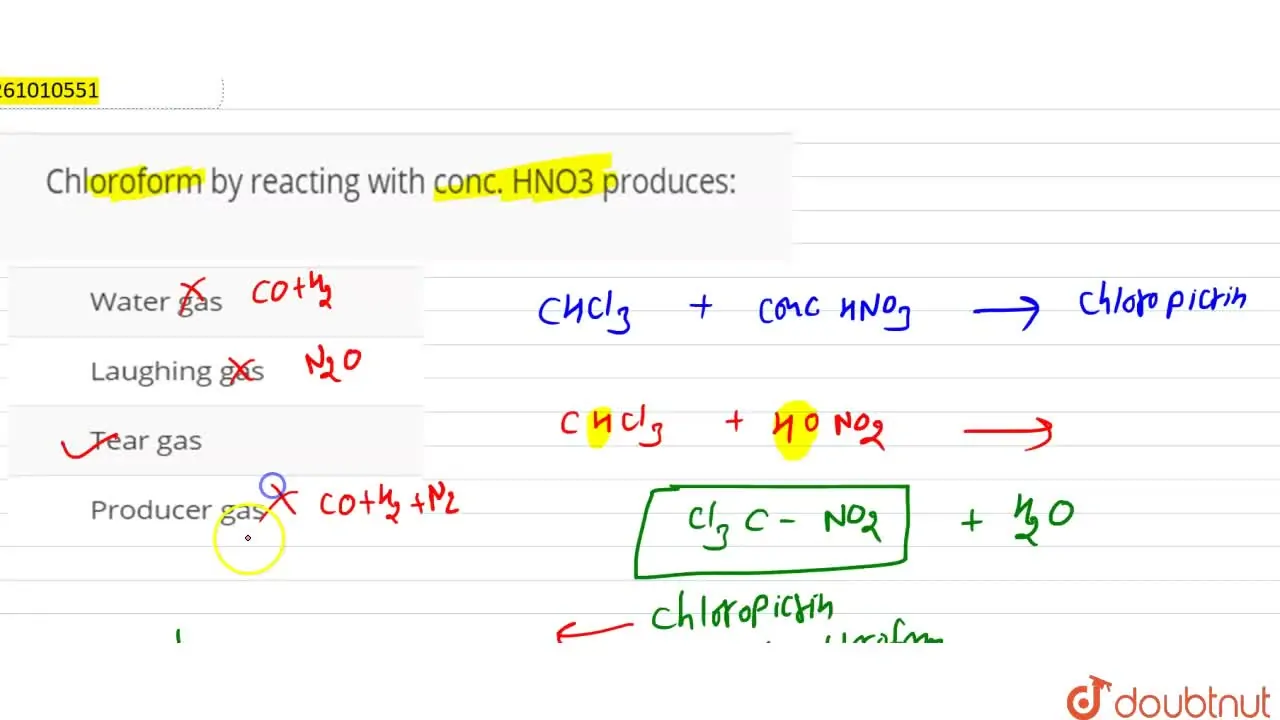 261010551
Chloroform by reacting with conc. HNO3 produces:
Water gas CO+H2
Laughing gas N2O
Tear gas
Producer gas CO+H2+N2
CHCl3 + conc HNO3 → chloropicrin
CHCl3 + HO NO2 →
Cl3C - NO2 + H2O
chloropicrin
doubtnut